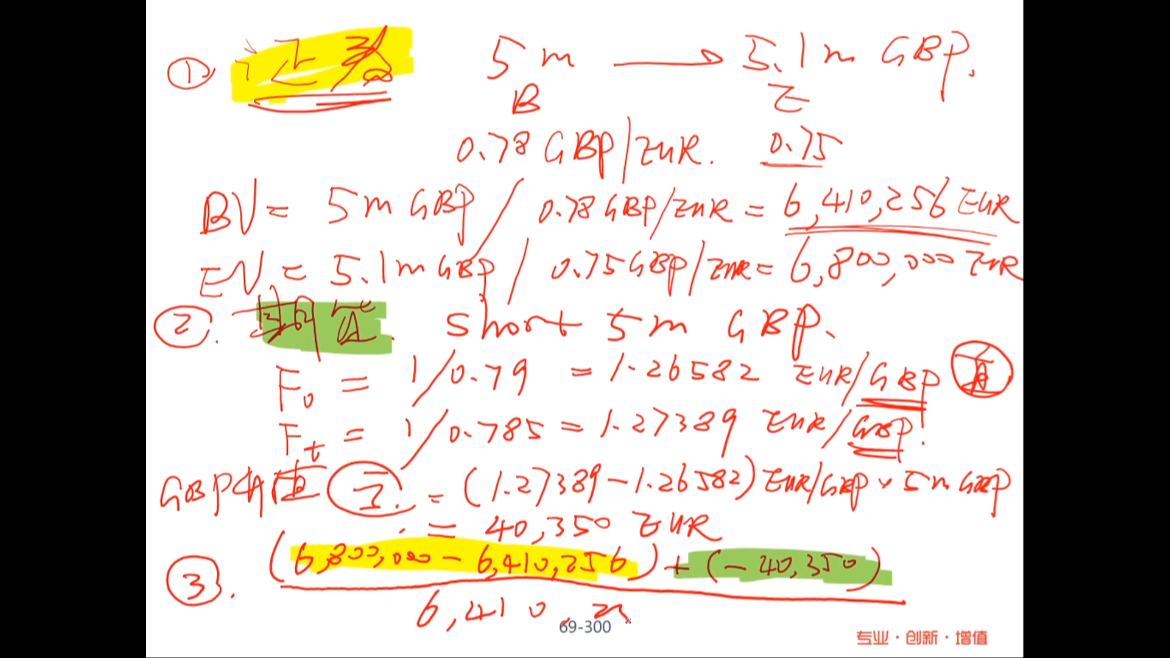 ① 证券 5m → 5.1m GBP.
B E
0.78 GBP/EUR. 0.75
BV = 5m GBP / 0.78 GBP/EUR = 6,410,256 EUR
EV = 5.1m GBP / 0.75 GBP/EUR = 6,800,000 EUR
②. short 5m GBP.
F₀ = 1/0.79 = 1.26582 EUR/GBP
Fₜ = 1/0.785 = 1.27389 EUR/GBP.
GBP升值 亏. = (1.27389-1.26582) EUR/GBP × 5m GBP
= 40,350 EUR
③. (6,800,000 - 6,410,256) + (-40,350)
6,410,25
69-300
专业·创新·增值